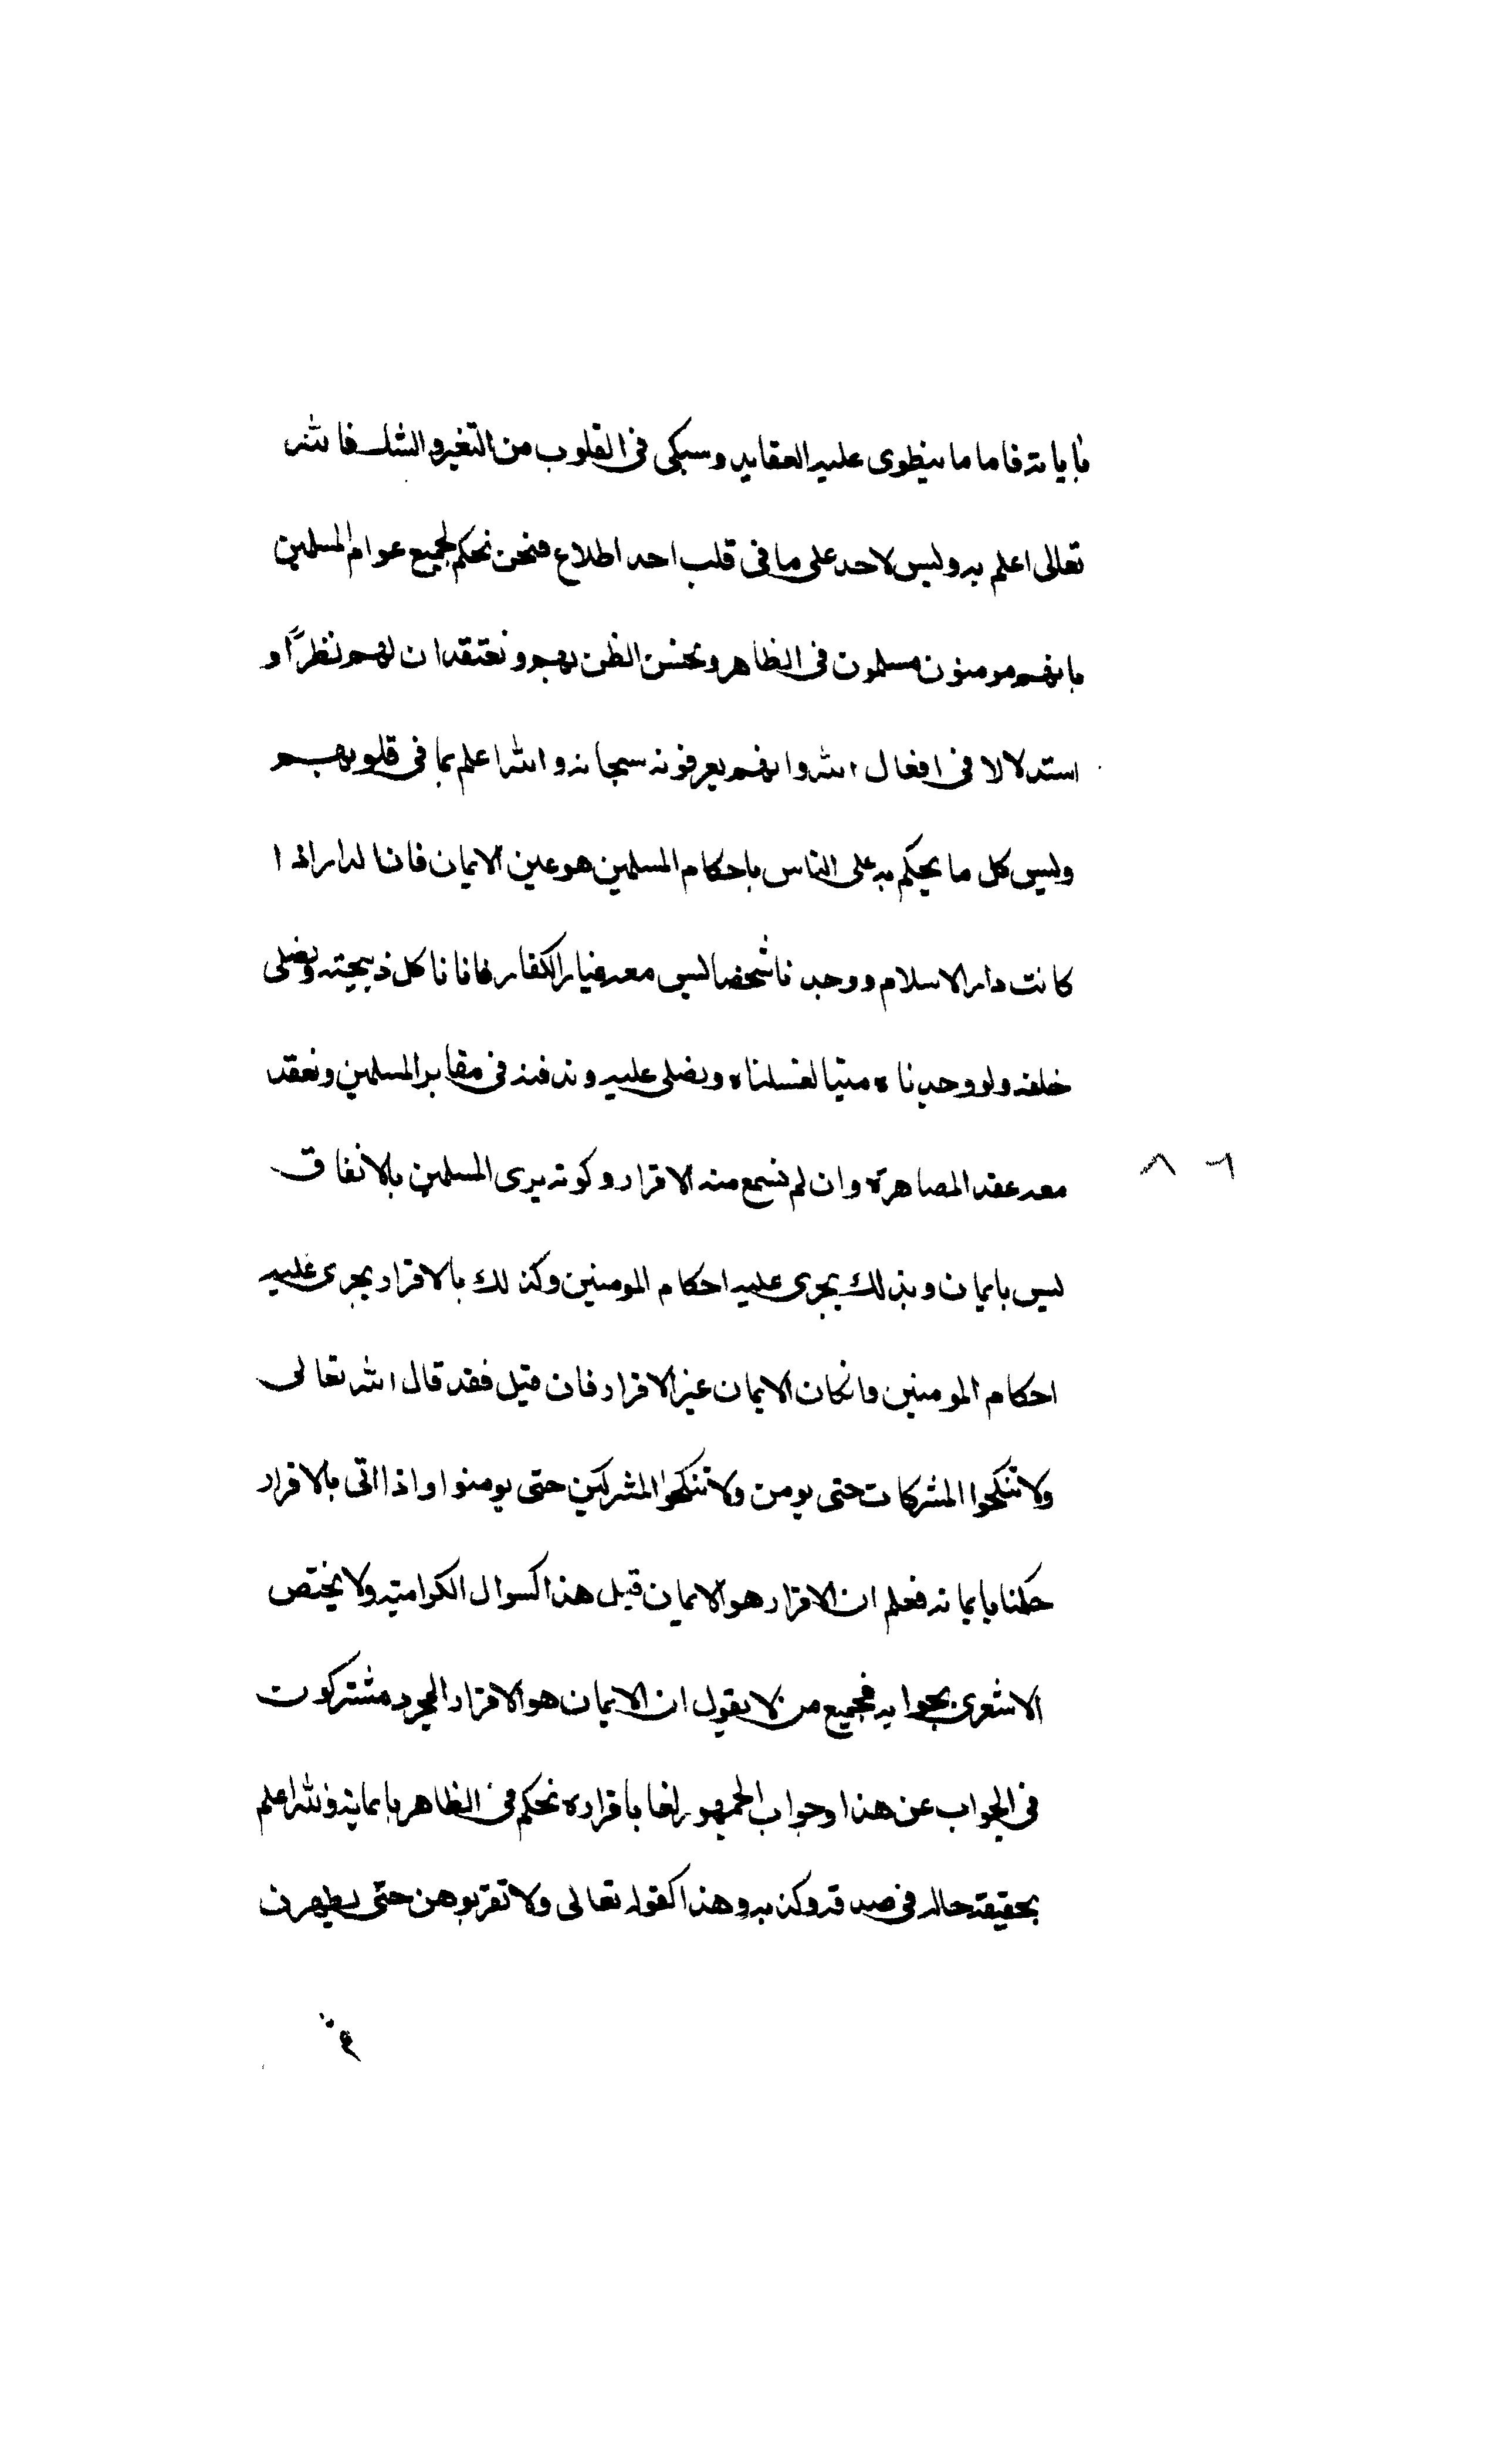 بأياته فاما ما ينطوى عليه العقايد وسبكى فى القلوب من التغير والشك فالله
تعالى اعلم به وليس لاحد على ما فى قلب احد اطلاع فنحن نحكم لجميع عوام المسلمين
بانهم مومنون مسلمون فى الظاهر ونحسن الظن بهم ونعتقد ان لهم نظرًا و
استدلالا فى افعال الله وانهم يعرفونه سبحانه والله اعلم بما فى قلوبهم
وليس كل ما يحكم به على الناس باحكام المسلمين هو عين الايمان فان الدار اذا
كانت دار الاسلام ووجدنا شخصا ليس معه غيار الكفار فانا ناكل ذبيحته ونصلى
خلفه ولو وجدناه ميتا لغسلناه ونصلى عليه وندفنه فى مقابر المسلمين ونعقد
معه عقد المصاهرة وان لم نسمع منه الاقرار وكونه بزى المسلمين بالاتفاق
٨٦
ليس بايمان وبذلك يجرى عليه احكام المومنين وكذلك بالاقرار يجرى عليه
احكام المومنين وانكان الايمان غير الاقرار فان قيل فقد قال الله تعالى
ولا تنكحوا المشركات حتى يومن ولا تنكحوا المشركين حتى يومنوا واذا اتى بالاقرار
حكمنا بايمانه فعلم ان الاقرار هو الايمان قيل هذا السوال الكرامية ولا يختص
الاشعرى بجوابه فجميع من لا يقول ان الايمان هو الاقرار المجرد مشتركون
فى الجواب عن هذا وجواب الجمهور انما باقراره نحكم فى الظاهر بايمانه والله اعلم
بحقيقة حاله فى صدقه وكذبه وهذا كقوله تعالى ولا تقربوهن حتى يطهرن